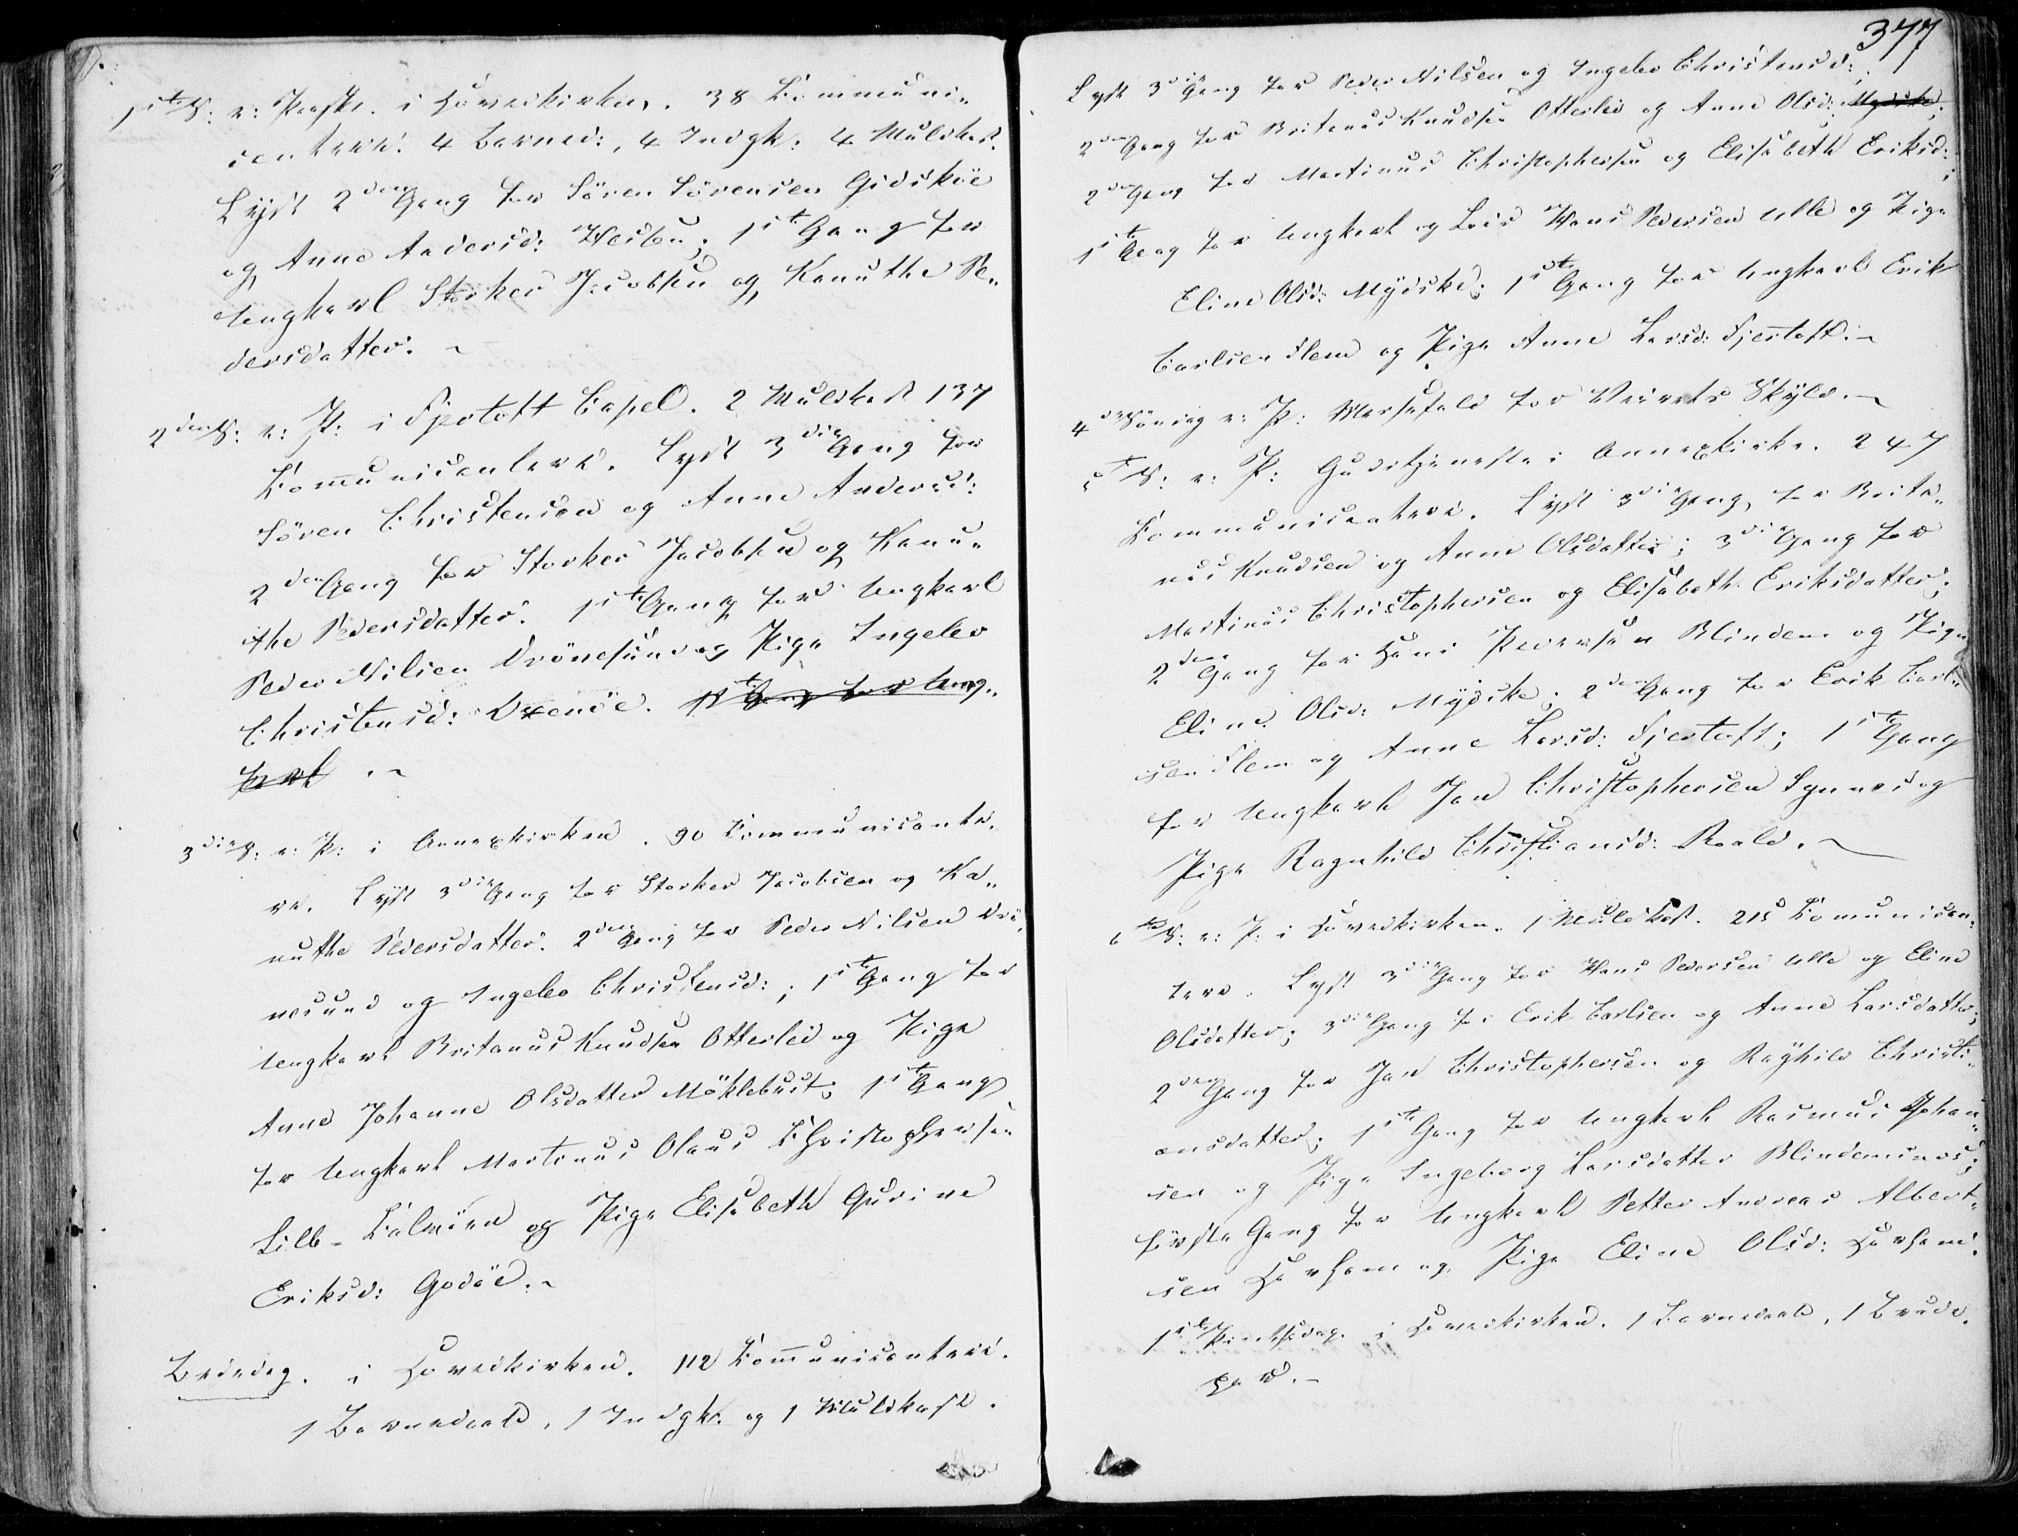 1ste S: e: Paaske. i Hovedkirken. 38 Communi-
centere. 4 Barned:, 4 Indgk: 4 Muldkast.
Lyst 2den Gang for Sören Sörensen Gidsköe
og Anne Andersd: Hesben; 1ste Gang for
Ungkarl Storker Jacobsen og Kanuthe Pe-
dersdatter. ~
2den S: e: P: i Fjertoft Capel. 2 Muldkast 137
Kommunicentere. Lyst 3die Gang for
Sören Christensen og Anne Andersd:
2den Gang for Storker Jacobsen og Kanu-
the Pedersdatter. 1ste Gang for Ungkarl
Peder Nilsen Drönesund og Pige Ingebor
Christensd: Drenöe. 1ste Gang for Ung-
karl . ~
3die S: e: P: i Annexkirken. 90 Communicente-
re. Lyst 3die Gang for Storker Jacobsen og Ka-
nuthe Pedersdatter. 2den Gang for Peder Nilsen Drö-
nesund og Ingebor Christensd: ; 1ste Gang for
Ungkarl Britanus Knudsen Otterlei og Pige
Anne Johanne Olsdatter Möklebust; 1ste Gang
for Ungkarl Martinus Olaus Christophersen
Lille-Kalvöen og Pige Elisabeth Gurine
Eriksd: Godöe. ~
Bededag. i Hovedkirken. 112 Kommunicentere.
1 Barnedaab, 1 Indgk. og 1 Muldkast.
377
Lyst 3die Gang for Peder Nilsen og Ingebor Christensd:;
2den Gang for Britanus Knudsen Otterlei og Anne Olsd: Mydske;
2den Gang for Martinus Christophersen og Elisabeth Eriksd:;
1ste Gang for Ungkarl og Hans Pedersen Ulle og Pige
Eline Olsd: Mydske; 1ste Gang for Ungkarl Erik
Carlsen Flem og Pige Anne Larsd: Fjertoft. ~
4de Söndag e: P: Messefald for Veirets Skyld. ~
5te S: e: P: Gudstjeneste i Annexkirke. 247
Kommunicentere. Lyst 3die Gang for Brita-
nus Knudsen og Anne Olsdatter; 3die Gang for
Martinus Christophersen og Elisabeth Eriksdatter;
2den Gang for Hans Pedersen Blindem og Pige
Eline Olsd: Mydske; 2den Gang for Erik Carl-
sen Flem og Anne Larsd: Fjertoft; 1ste Gang
for Ungkarl Jan Christophersen Synnes og
Pige Ragnhild Christiansd: Roald. ~
6te S: e: P: i Hovedkirken. 1 Muldkast. 215 Communicen-
tere. Lyst 3die Gang for Hans Pedersen Ulle og Eline
Olsdatter; 3die Gang for Erik Carlsen og Anne Larsdatter;
2den Gang for Jan Christophersen og Raghild Christi-
ansdatter; 1ste Gang for Ungkarl Rasmus Johan-
sen og Pige Ingeborg Larsdatter Blindemsnes;
förste Gang for Ungkarl Petter Andreas Albert-
sen Harham og Pige Eline Olsd: Harham.
1ste Pintsedag. i Hovedkirken. 1 Barnedaab, 1 Brude-
par. ~